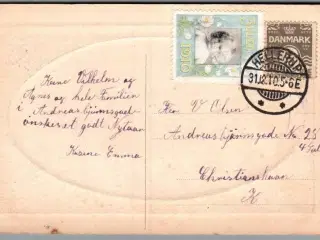 DANMARK
JUL 1910
HELLERUP
31.12.10.5-6E
Kære Vilhelm og
Agnes og hele Familien
i Andreas Bjørnsgade
ønskes et godt Nytaar
Emma
Herr V Olsen
Andreas Bjørnsgade No 25
4 Sal
Christianshavn
K